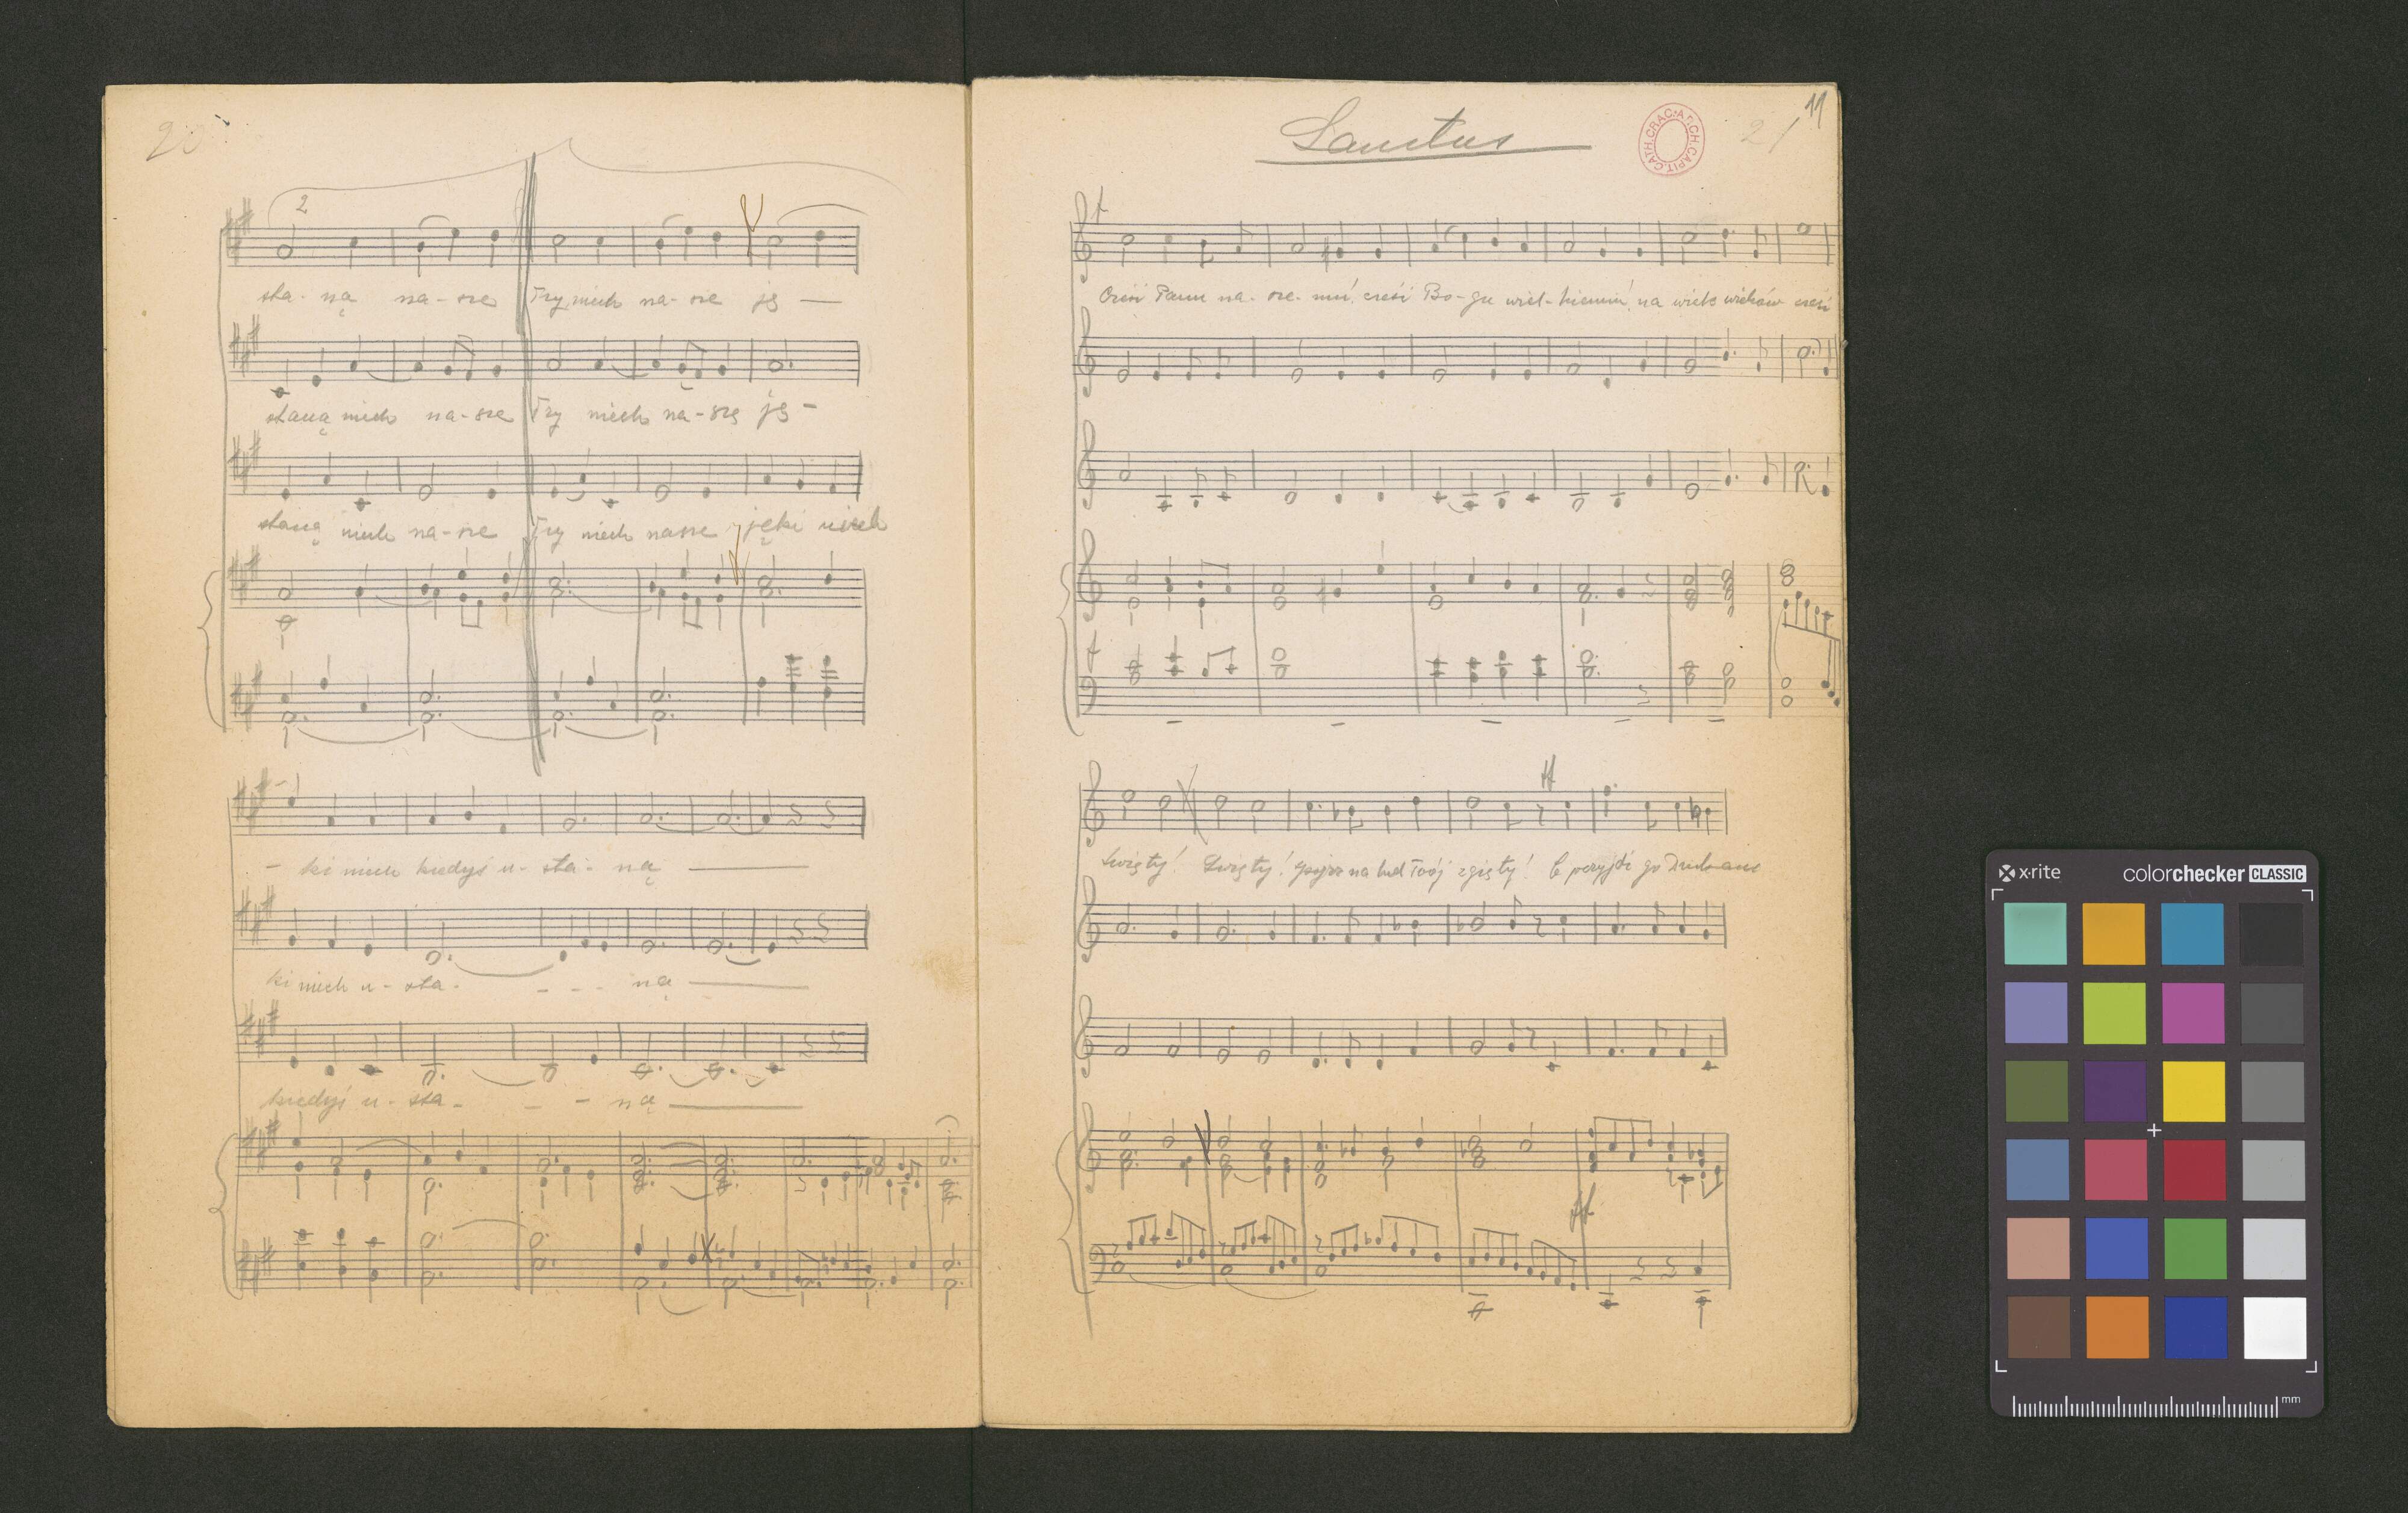 20
2
sta - ną na - sze łzy niech na - sze ję —
staną niech na - sze łzy niech na - szę ję -
staną niech na - sze łzy niech nasze jęki niech
- ki niech kiedyś u - sta - ną —
ki niech u - sta - - - - ną —
kiedyś u - sta - - - ną —
Sanctus
CATH.CRAC.ARCH.CAPIT.
21
11
f
Cześć Panu na - sze - mu! cześć Bo - gu wiel - kiemu! na wieki wieków cześć
f
ff
Święty! Święty! na lud Twój zgięty! O przyjdź go
ff
x-rite colorchecker CLASSIC
mm